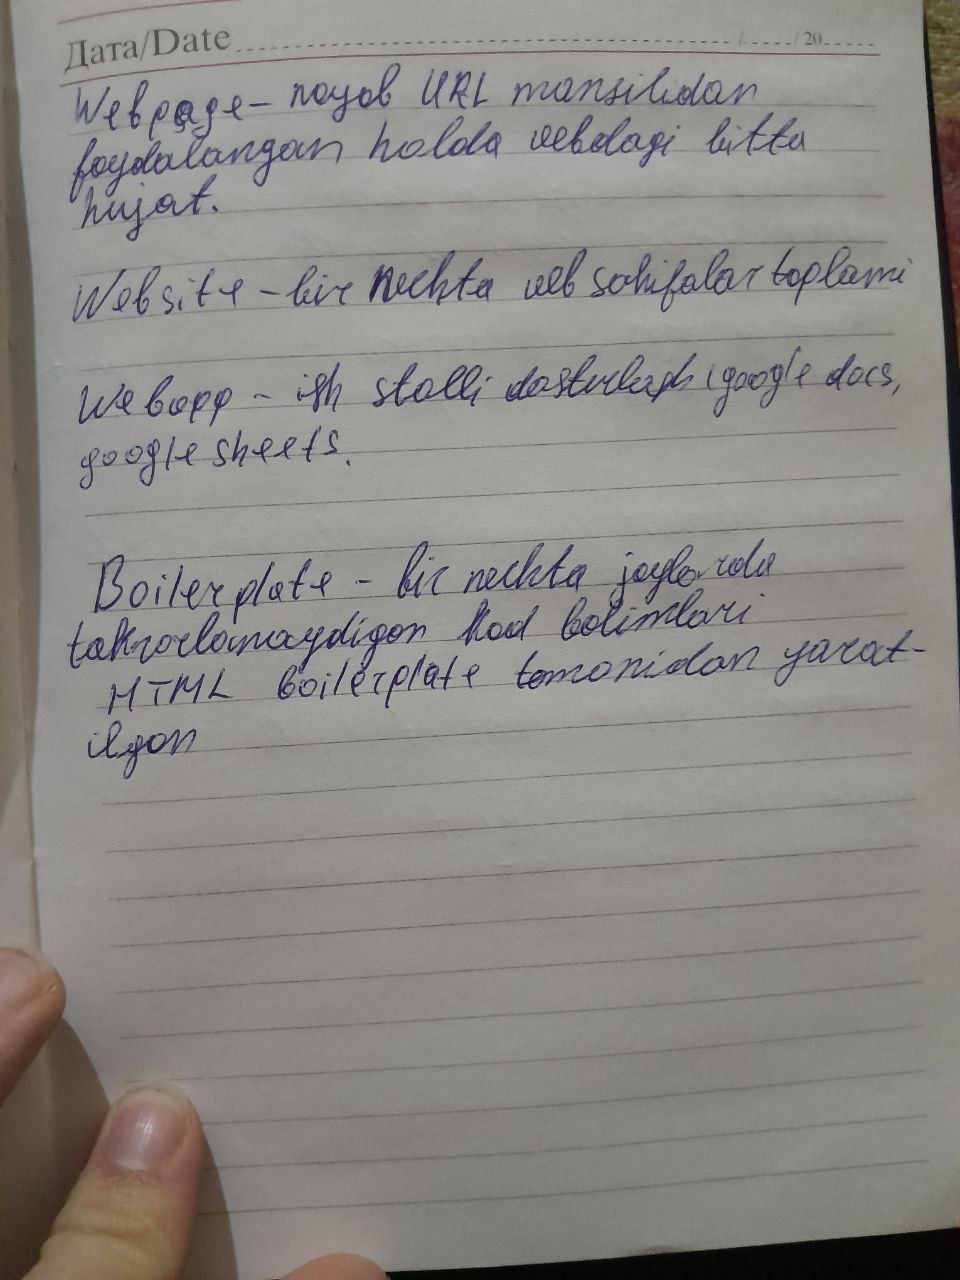 Дата/Date / / 20
Webpage – noyob URL manzilidan
foydalangan holda vebdagi bitta
hujat.
Website – bir nechta veb sahifalar toplami
Webapp – ish stolli dasturlash (google docs,
google sheets.
Boilerplate – bir nechta joylarda
takrorlanaydigan kod bolimlari
HTML boilerplate tomonidan yarat-
ilgan